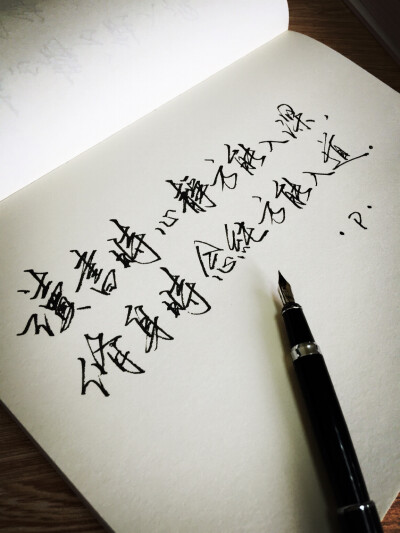 讀書時心静方能入深.
修身時念純方能入道.
.P.